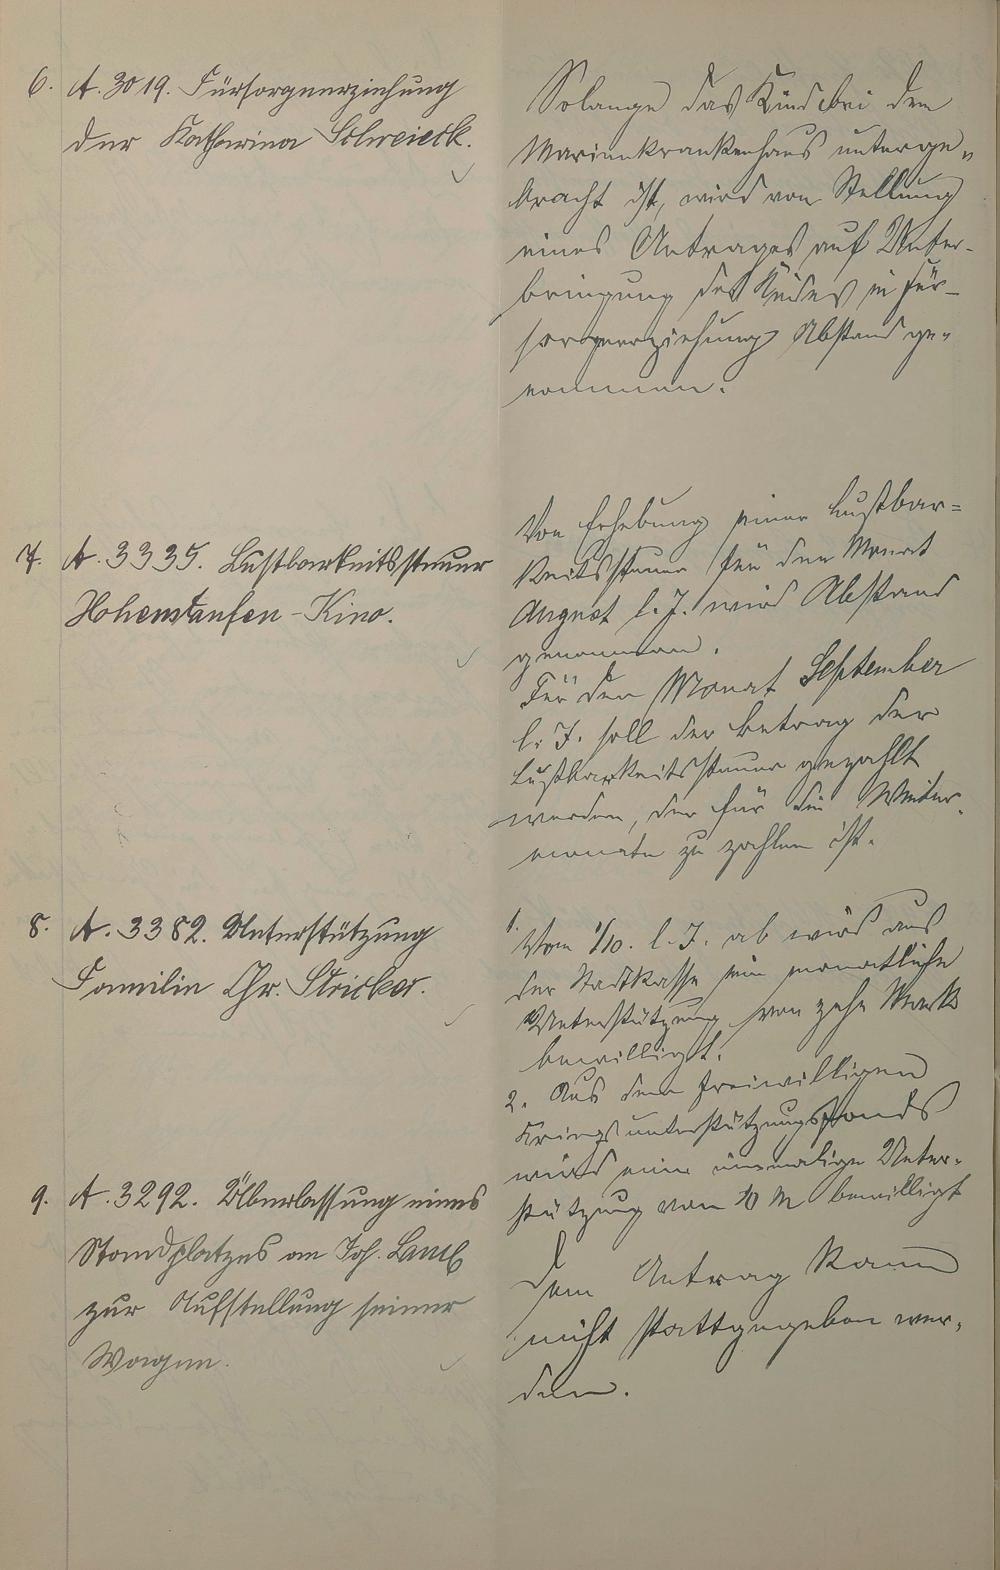 6. A. 3019. Fürsorgeerziehung
der Katharina Schweick.
Solange das Kind bei dem
Marienkrankenhaus unterge„
bracht ist, wird von Stellung
eines Antrages auf Unter-
bringung des Kindes in Für-
sorgeerziehung Abstand ge„
nommen.
7. A. 3335. Lustbarkeitssteuer
Hohenstaufen-Kino.
Von Erhebung einer Lustbar=
keitssteuer für den Monat
August l. J. wird Abstand
genommen.
Für den Monat September
l. J. soll der Betrag der
Lustbarkeitssteuer gezahlt
werden, der für die Winter„
monate zu zahlen ist.
8. A. 3382. Unterstützung
Familie Chr. Stricker.
1. Vom 1/10. l. J. ab wird aus
der Stadtkasse eine monatliche
Unterstützung von zehn Mark
bewilligt.
2. Aus dem freiwilligen
Kriegsunterstützungsfonds
wird eine einmalige Unter„
stützung von 10 M bewilligt
9. A. 3292. Überlassung eines
Standplatzes an Joh.
zur Aufstellung seiner
Wagen.
Dem Antrag kann
nicht stattgegeben wer„
den.